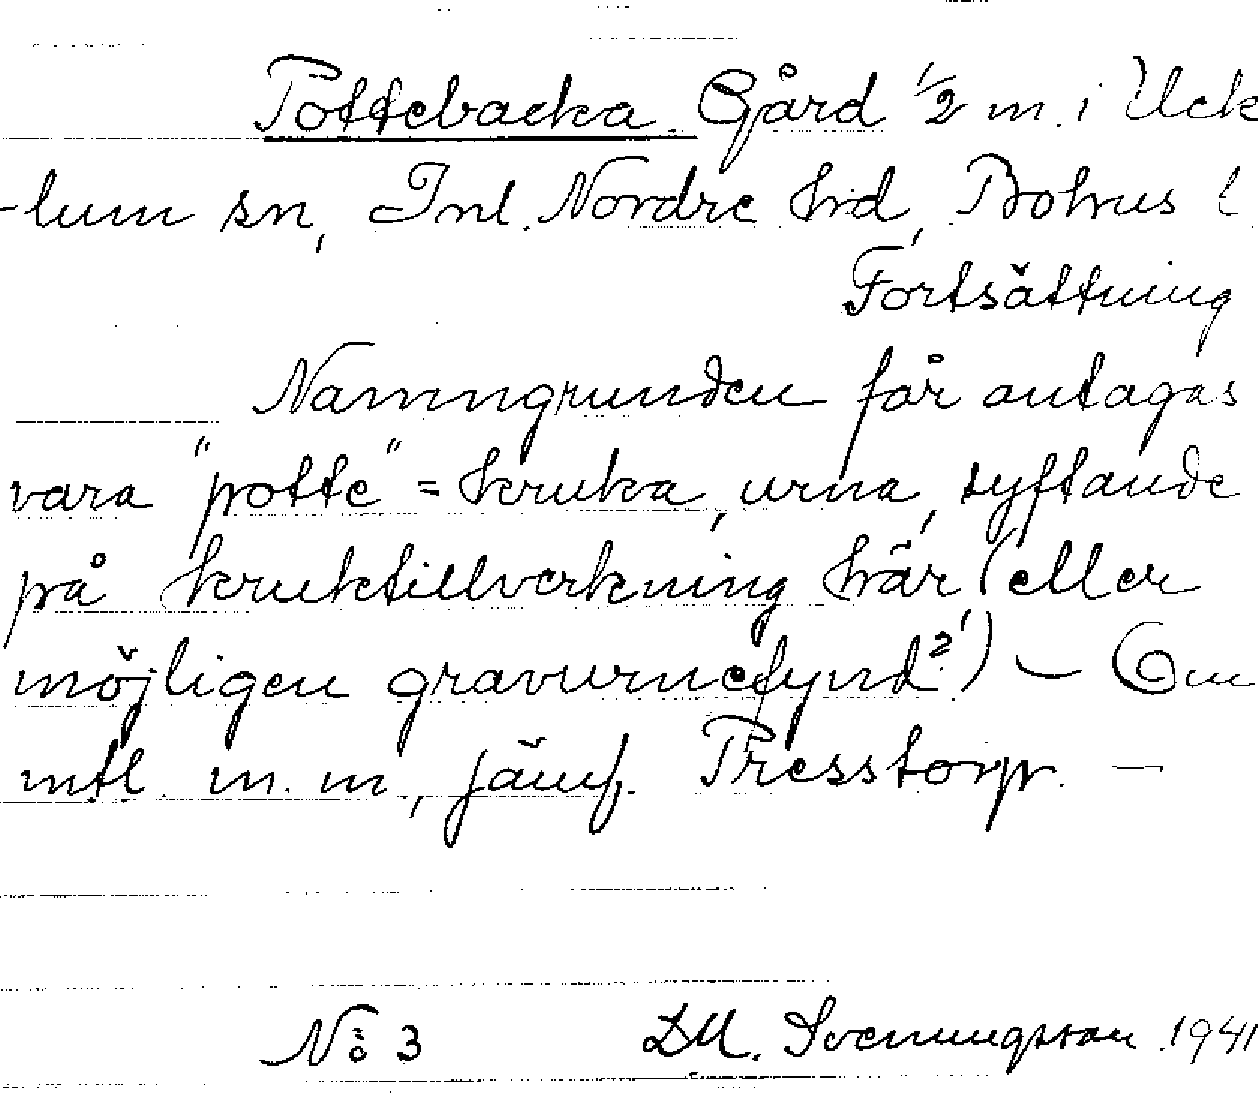 Pottebacka. Gård 1/2 m. i Uck
-lum sn, Inl. Nordre hrd, Bohus l
Fortsättning
Namngrunden får antagas
vara "potte" = kruka, urna, syftande
på kruktillverkning här (eller
möjligen gravurnefynd?!) – Om
mtl m. m, jämf. Presstorp. –
No 3 D.M. Svenungsson 1941